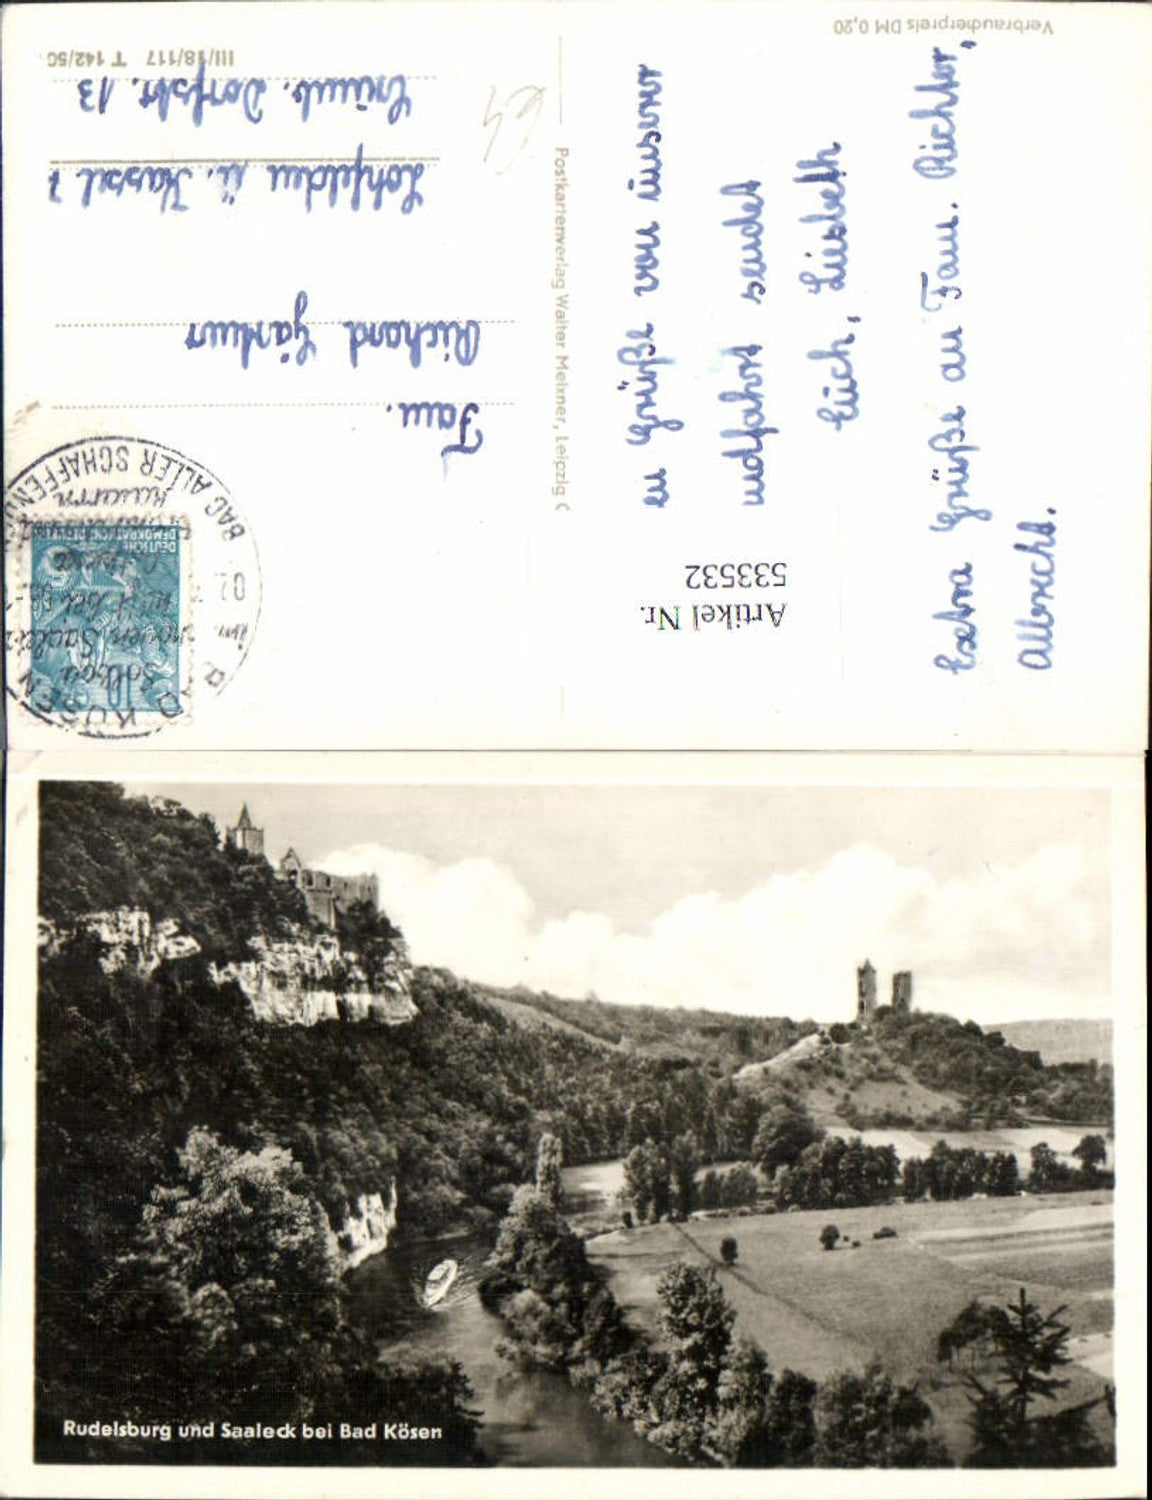 Verbraucherpreis DM 0,20
en Grüße von unserer
undfahrt sendet
Euch, Liesbeth
Extra Grüße an Fam. Richter,
Albrecht.
Artikel Nr.
533532
Postkartenverlag Walter Meixner, Leipzig C
Fam.
Richard Gärtner
Lohfelden ü. Kassel 7
Crumb. Dorfstr. 13
III/18/117 T 142/50
BAD KÖSEN
BAD ALLER SCHAFFEN
DEUTSCHE
DEMOKRATISCHE
10
Rudelsburg und Saaleck bei Bad Kösen